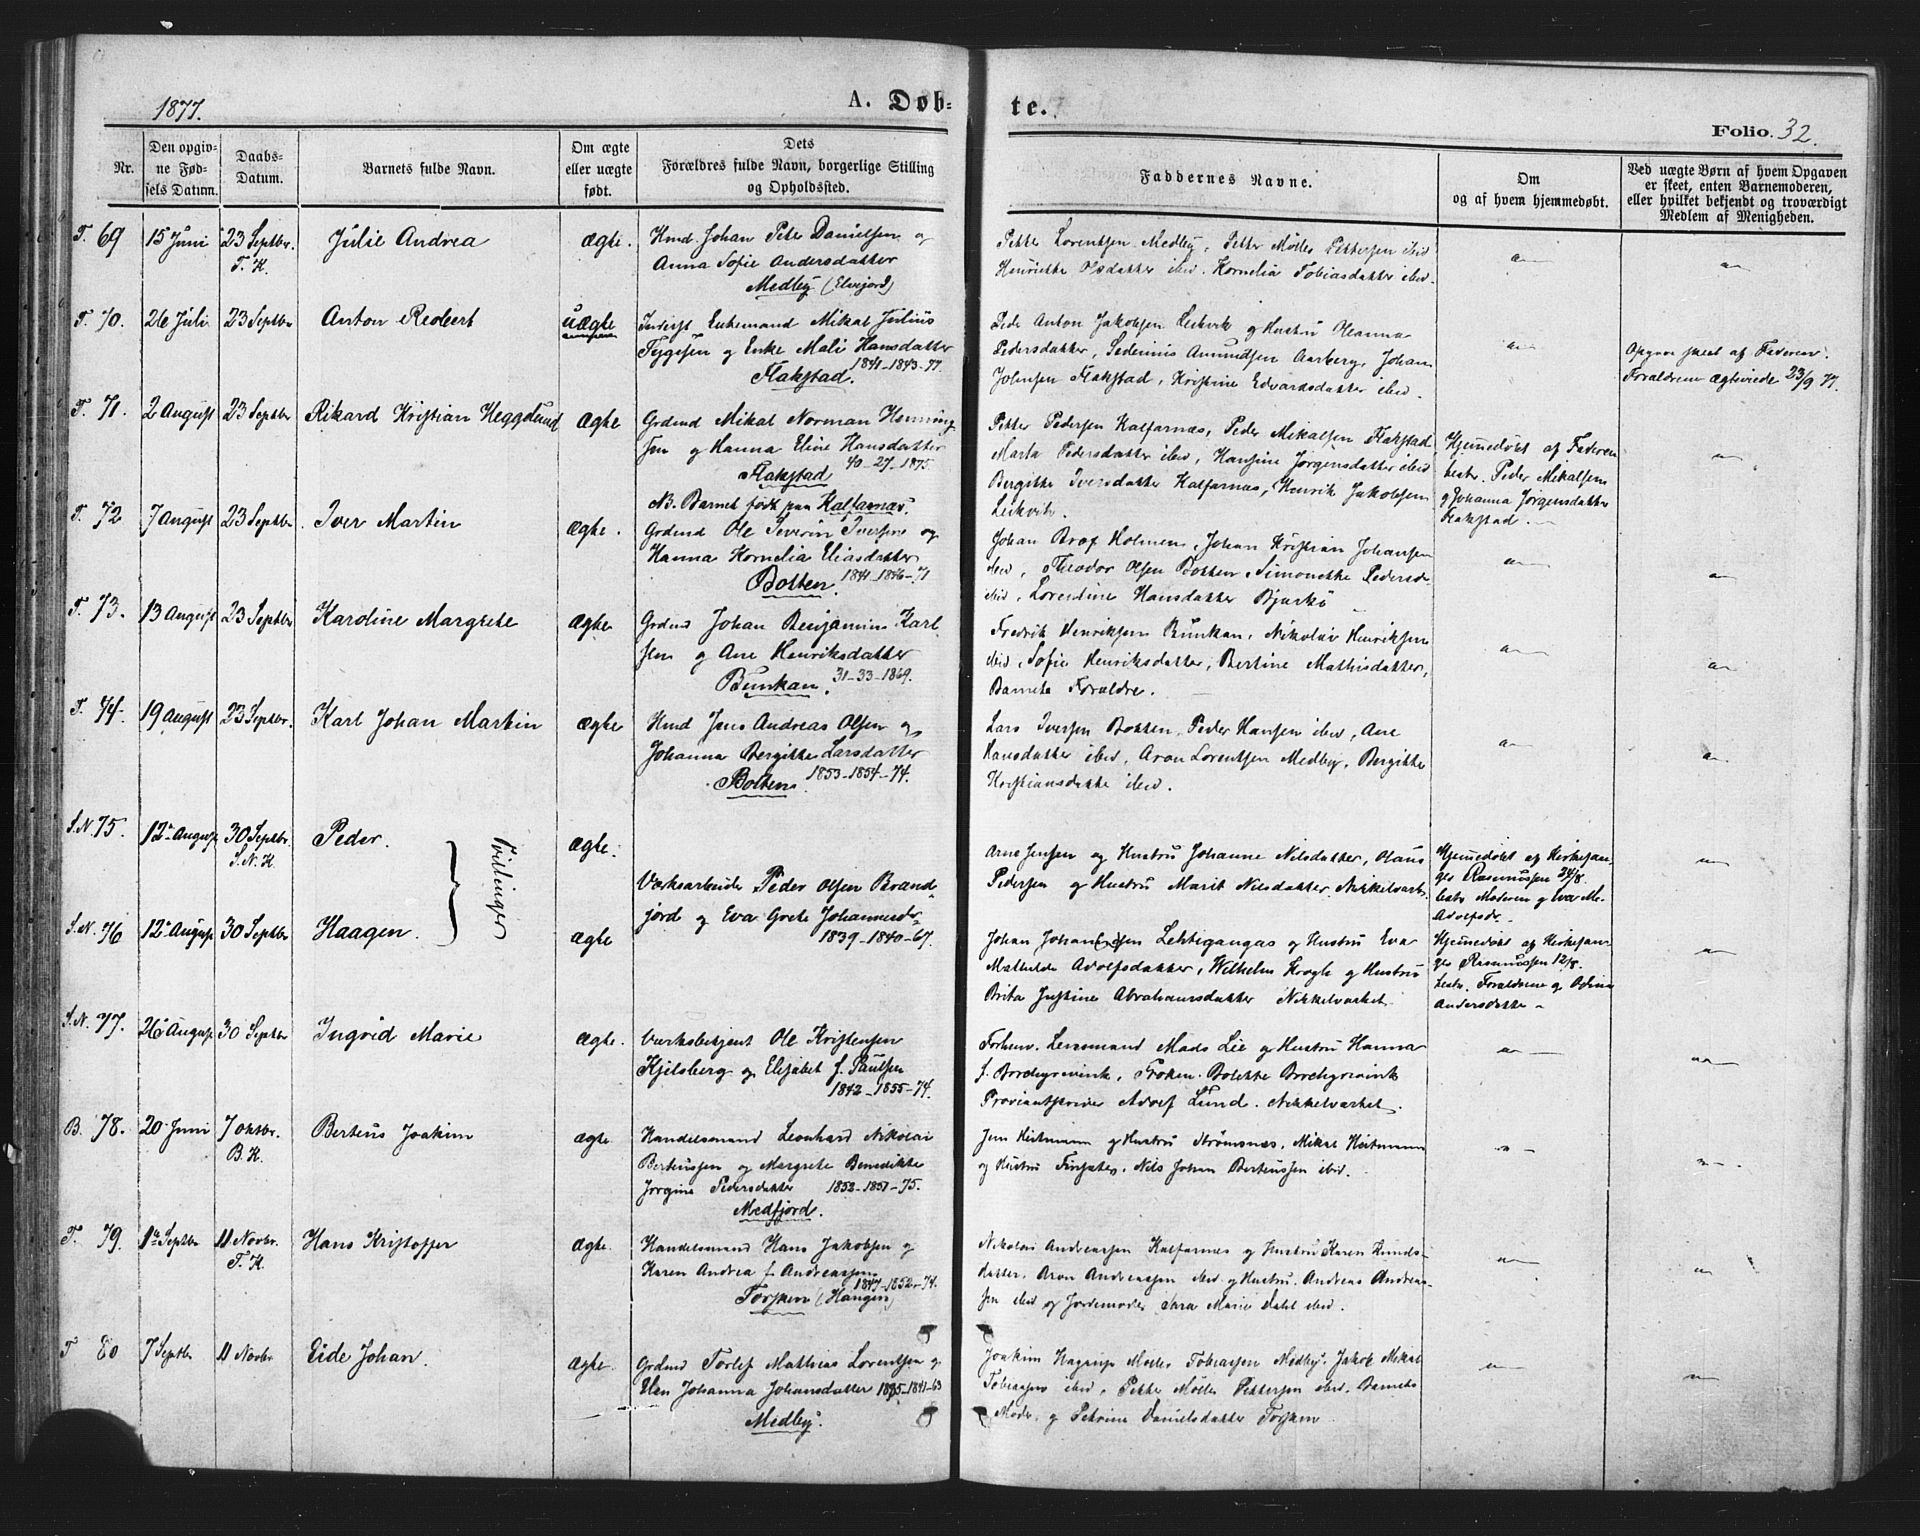 1877.
A. Døb-
te.
Folio. 32.
Nr.
Den opgiv-
ne Fød-
sels Datum.
Daabs-
Datum.
Barnets fulde Navn.
Om ægte
eller uægte
født.
Dets
Forældres fulde Navn, borgerlige Stilling
og Opholdssted.
Faddernes Navne.
Om
og af hvem hjemmedøbt.
Ved uægte Børn af hvem Opgaven
er skeet, enten Barnemoderen,
eller hvilket bekjendt og troværdigt
Medlem af Menigheden.
T. 69
15 Juni
23 Septbr.
T. K.
Julie Andrea
Ægte.
Hmd. Johan Peter Danielsen og
Anna Sofie Andersdatter
Medby (Elvejord)
Petter Lorentsen Medby, Petter Møller Pettersen ibid
Henriette Olsdatter ibid. Kornelia Tobiasdatter ibid.
T. 70.
26 Juli
23 Septbr
Anton Redert
Uægte
Enkemand Mikal Julius
Teggesen og Enke Mali Hansdatter
1841-1843-77.
Flakstad.
Peder Anton Jakobsen Leikvik og Hustru Oleanna
Pedersdatter, Sedenius Amundsen Aarberg, Johan
Johnsen Flakstad, Kristine Edvardsdatter ibid.
Opgave skeet af Faderen.
Forældrene ægteviede 23/9 77.
T. 71.
2 August
23 Septbr
Rikard Kristian Heggelund
Ægte
Grdmd Mikal Norman Henning
sen og Hanna Eline Hansdatter
40-27-1875.
Flakstad
NB. Barnet født paa Kalfarnæs.
Petter Pedersen Kalfarnæs, Peder Mikalsen Flakstad
Marta Pedersdatter ibid, Hansine Jørgensdatter ibid
Bergitte Iversdatter Kalfarnæs, Henrik Jakobsen
Leikvik.
Hjemmedøbt af Faderen
bestr. Peder Mikalsen
og Johanna Jørgensdatter
Flakstad.
T. 72
7 August
23 Septbr
Iver Martin
Ægte.
Grdmd Ole Severin Iversen og
Hanna Kornelia Eliasdatter
Botten. 1841-1846-71
Johan Brox Holmen, Johan Kristian Johansen
ibid, Theodor Olsen Botten, Simonette Pedersd.
ibid, Lorentine Hansdatter Bjarkø
T. 73.
13 August
23 Septbr
Karoline Margrete
Ægte
Grdmd Johan Benjamin Karl
sen og Ane Henriksdatter
Bunkan. 31-33-1869.
Fredrik Henriksen Bunkan, Nikolai Henriksen
ibid, Sofie Henriksdatter, Bertine Mathisdatter,
Barnets Forældre.
T. 74.
19 August
23 Septbr.
Karl Johan Martin
Ægte
Hmd Jens Andreas Olsen og
Johanna Bergitte Larsdatter
Botten. 1853-1854-74.
Lars Iversen Botten, Peder Hansen ibid, Ane
Hansdatter ibid, Aron Lorentsen Medby, Bergitte
Kristiansdatter ibid.
S.N. 75.
12te August
30 Septbr.
S. N. K.
Peder.
Tvillinger
Ægte.
Værksarbeider Peder Olsen Brand-
fjord og Eva Grete Johannesdr.
1839-1840-67.
Arne Jensen og Hustru Johanne Nilsdatter, Olaus
Pedersen og Hustru Marit Nilsdatter Nikkelværket
Hjemmedøbt af Kirkesan-
ger Rasmussen 24/8
bestr. Moderen og Eva M.
Adolfsdr.
S.N. 76
12te August
30 Septbr
Haagen.
Ægte
Johan Johansen Lehtigangas og Hustru Eva
Mathilde Adolfsdatter, Wilhelm Krogh og Hustru
Brita Justine Abrahamsdatter Nikkelværket.
Hjemmedøbt af Kirkesan-
ger Rasmussen 12/8.
bestr. Forældrene og Odina
Andersdatter
S.N. 77.
26 August
30 Septbr
Ingvid Marie
Ægte.
Værksbetjent Ole Kristensen
Kjelsberg og Elisabet f. Paulsen
1842-1855-74.
Forhenv. Lensmand Mads Lie og Hustru Hanna
f. Borchgrevink, Frøken Bolette Borchgrevink
Proviantskriver Adolf Lund. Nikkelværket.
B. 78.
20 Juni
7 Oktbr.
B. K.
Berteus Joakim
Ægte
Handelsmand Leonhard Nikolai
Berteussen og Margrete Benedikte
Jørgine Pedersdatter 1852-1851-75.
Medfjord.
Jens Heitmann og Hustru Strømsnæs, Mikal Heitmann
og Hustru Finsæter, Nils Johan Berteussen ibid.
T. 79.
1te Septbr
11 Novbr.
T. K.
Hans Kristoffer
Ægte.
Handelsmand Hans Jakobsen og
Karen Andrea f. Andreassen
1847-1852-74.
Torsken (Hangen)
Nikolai Andreassen Kalfarnæs og Hustru Karen Lunds-
datter, Aron Andreassen ibid og Hustru, Andreas Andreas-
sen ibid og Jordemoder Sara Marie Dahl ibid.
T 80
7 Septbr
11 Novbr
Eide Johan.
Ægte.
Grdmd Torlef Mathias Lorentsen og
Elen Johanna Johansdatter 1835-1841-63
Medby.
Joakim Hagrup Møller Tobiassen Medby, Jakob Mikal
Tobiassen ibid, Petter Møller Pettersen ibid. Barnets
Moder, og Petrine Danielsdatter Torsken